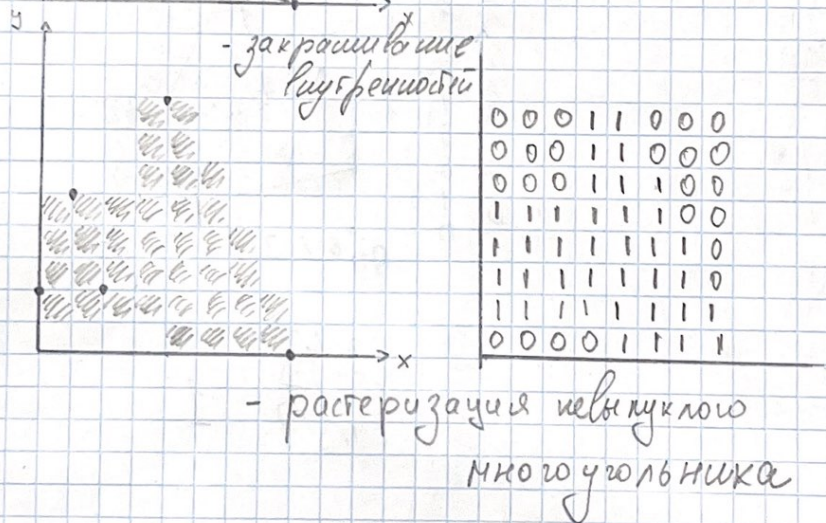 x
y
- закрашивание
внутренностей
0 0 0 1 1 0 0 0
0 0 0 1 1 0 0 0
0 0 0 1 1 1 0 0
1 1 1 1 1 1 0 0
1 1 1 1 1 1 1 0
1 1 1 1 1 1 1 0
1 1 1 1 1 1 1 1
0 0 0 0 1 1 1 1
x
- растеризация невыпуклого
многоугольника